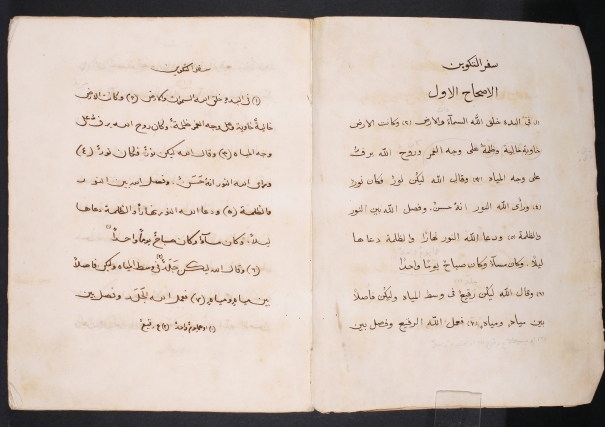 سفر التكوين
الاصحاح الاول
(١) في البدء خلق الله السمآء والارض (٢) وكانت الارض
خاوية خالية وظلمة على وجه الغمر وروح الله يرف
على وجه المياه (٣) وقال الله ليكن نورٌ فكان نورٌ
(٤) ورأى الله النور انهُ حسنٌ. وفصل الله بين النور
والظلمة (٥) ودعا الله النور نهارًا والظلمة دعاها
ليلًا. وكان مسآء وكان صباح يومًا واحدًا
(٦) وقال الله ليكن رقيع في وسط المياه وليكن فاصلًا
بين مياه ومياه. (٧) فعمل الله الرقيع وفصل بين
سفر التكوين
(١) في البدء خلق الله السموات والارض (٢) وكانت الارض
خالية خاوية وعلى وجه الغمر ظلمة وكان روح الله يرف على
وجه المياه (٣) وقال الله ليكن نورٌ فكان نورٌ (٤)
ورأى الله النور انهُ حَسَنٌ. وفصل الله بين النور
والظلمة (٥) ودعا الله النور نهارًا والظلمة دعاها
ليلًا. وكان مسآء وكان صباحٌ يومًا واحدًا
(٦) وقال الله ليكن جَلَدٌ في وسط المياه وليكن فاصلًا
بين مياه ومياه (٧) فعمل الله الجَلَد وفصل بين